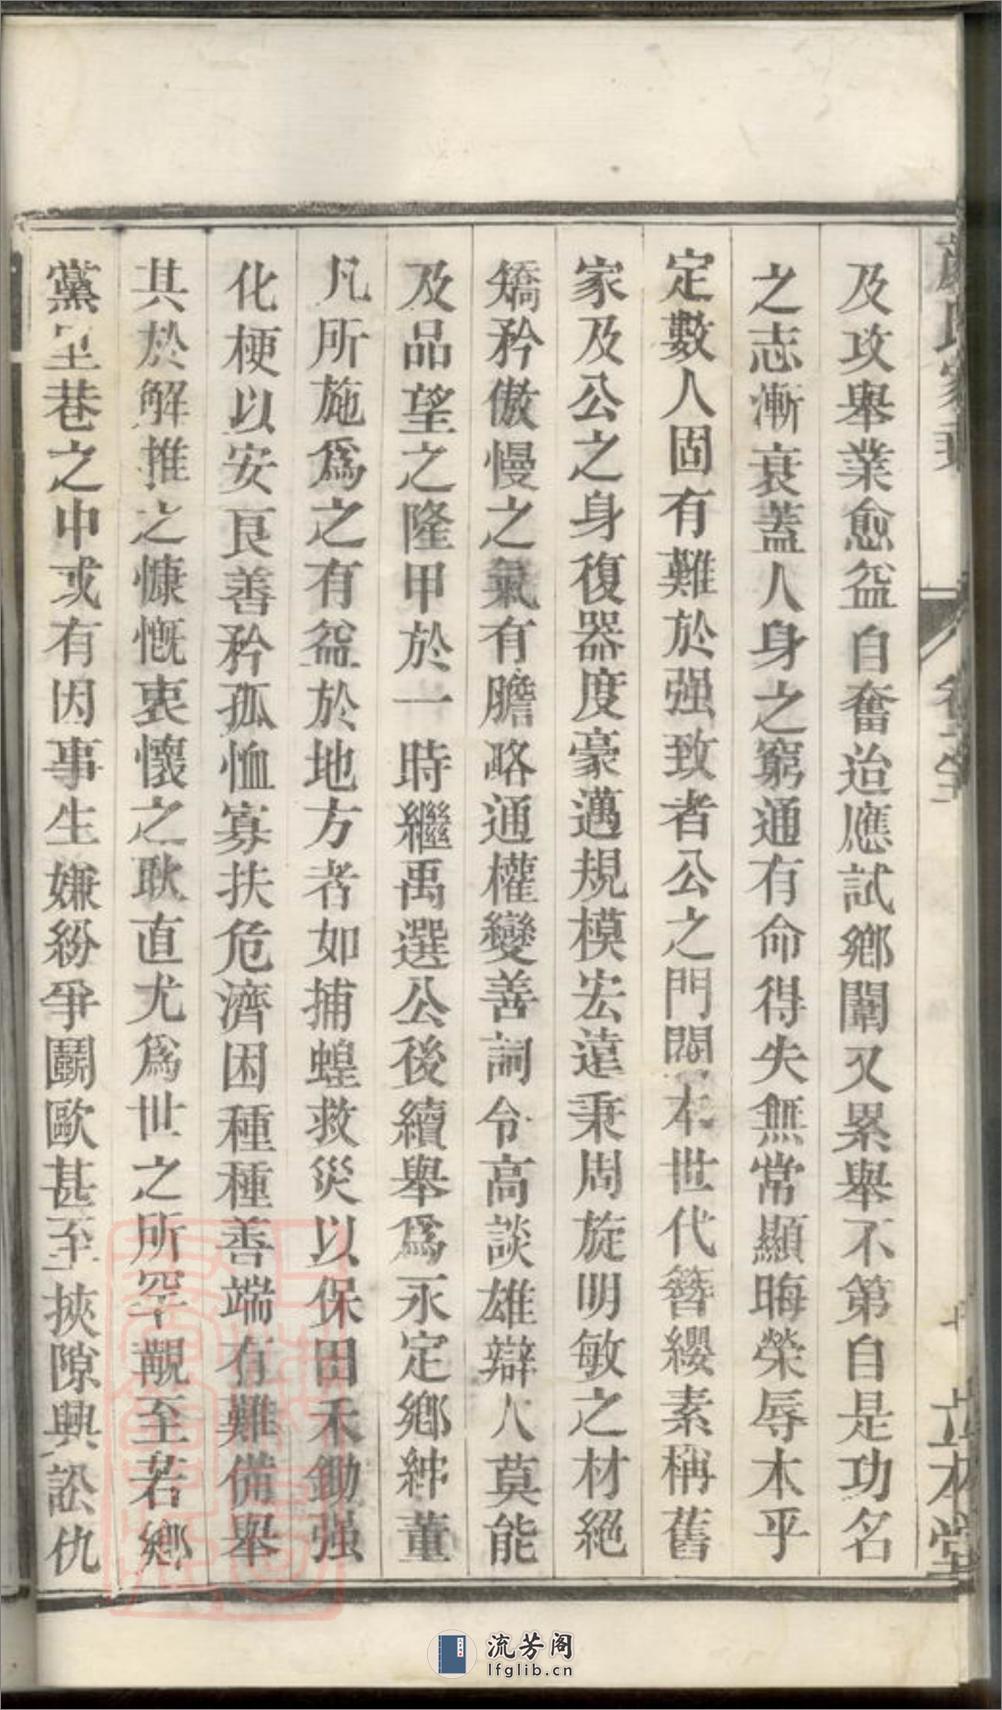 及攻舉業愈益自奮迨應試鄉闈又累舉不第自是功名
之志漸衰蓋人身之窮通有命得失無常顯晦榮辱木乎
定數人固有難於强致者公之門閥本世代簪纓素稱舊
家及公之身復器度豪邁規模宏遠秉周旋明敏之材絕
矯矜傲慢之氣有膽略通權變善詞令高談雄辯人莫能
及品望之隆甲於一時繼禹選公後續舉爲永定鄉紳董
凡所施爲之有益於地方者如捕蝗救災以保田禾鋤强
化梗以安良善矜孤恤寡扶危濟困種種善端有難備舉
其於解推之慷慨衷懷之耿直尤爲世之所罕覯至若鄉
黨里巷之中或有因事生嫌紛爭鬬歐甚至挾隙興訟仇
立本堂
流芳阁
lfglib.cn